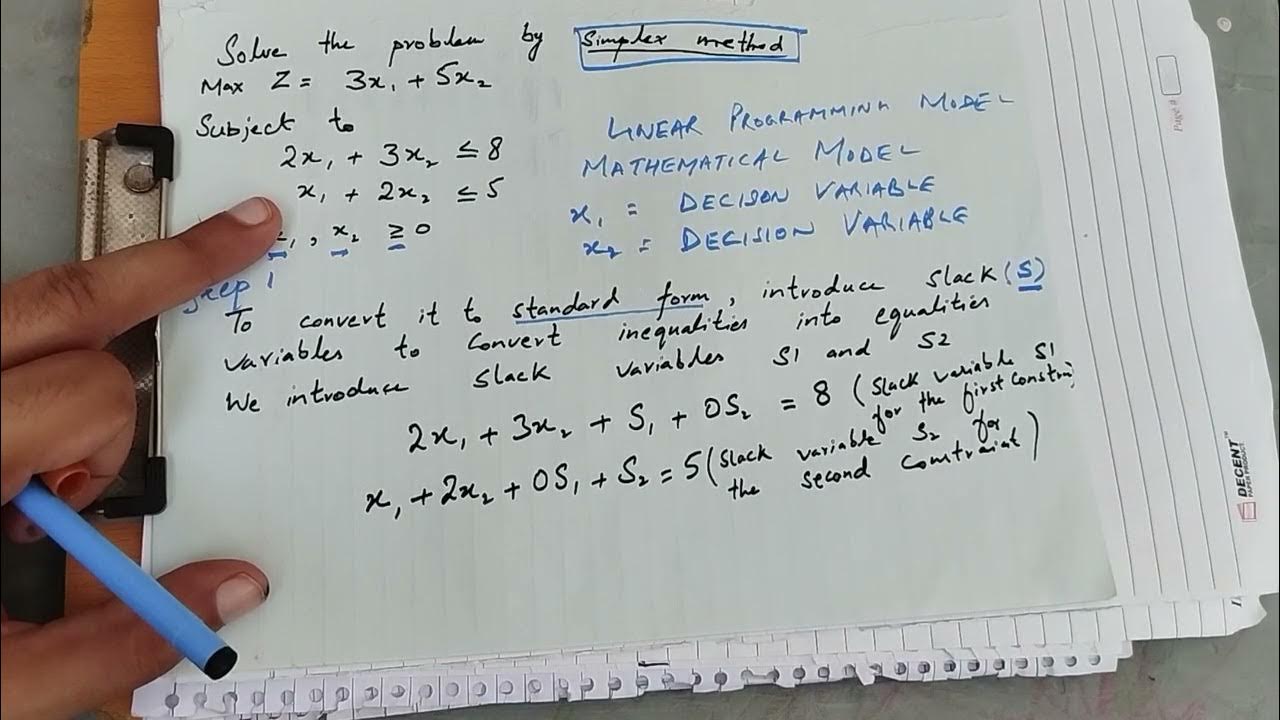 Solve the problem by Simplex method
Max Z = 3x₁ + 5x₂
Subject to
2x₁ + 3x₂ ≤ 8
x₁ + 2x₂ ≤ 5
₁, x₂ ≥ 0
LINEAR PROGRAMMING MODEL
MATHEMATICAL MODEL
x₁ = DECISON VARIABLE
x₂ = DECISION VARIABLE
Step 1
To convert it to standard form, introduce slack (S)
variables to convert inequalities into equalities
We introduce slack variables S1 and S2
2x₁ + 3x₂ + S₁ + 0S₂ = 8 (slack variable S1
for the first
x₁ + 2x₂ + 0S₁ + S₂ = 5 (slack variable S₂ for
the second constraint)
DECENT
PAPER PRODUCT
Page #